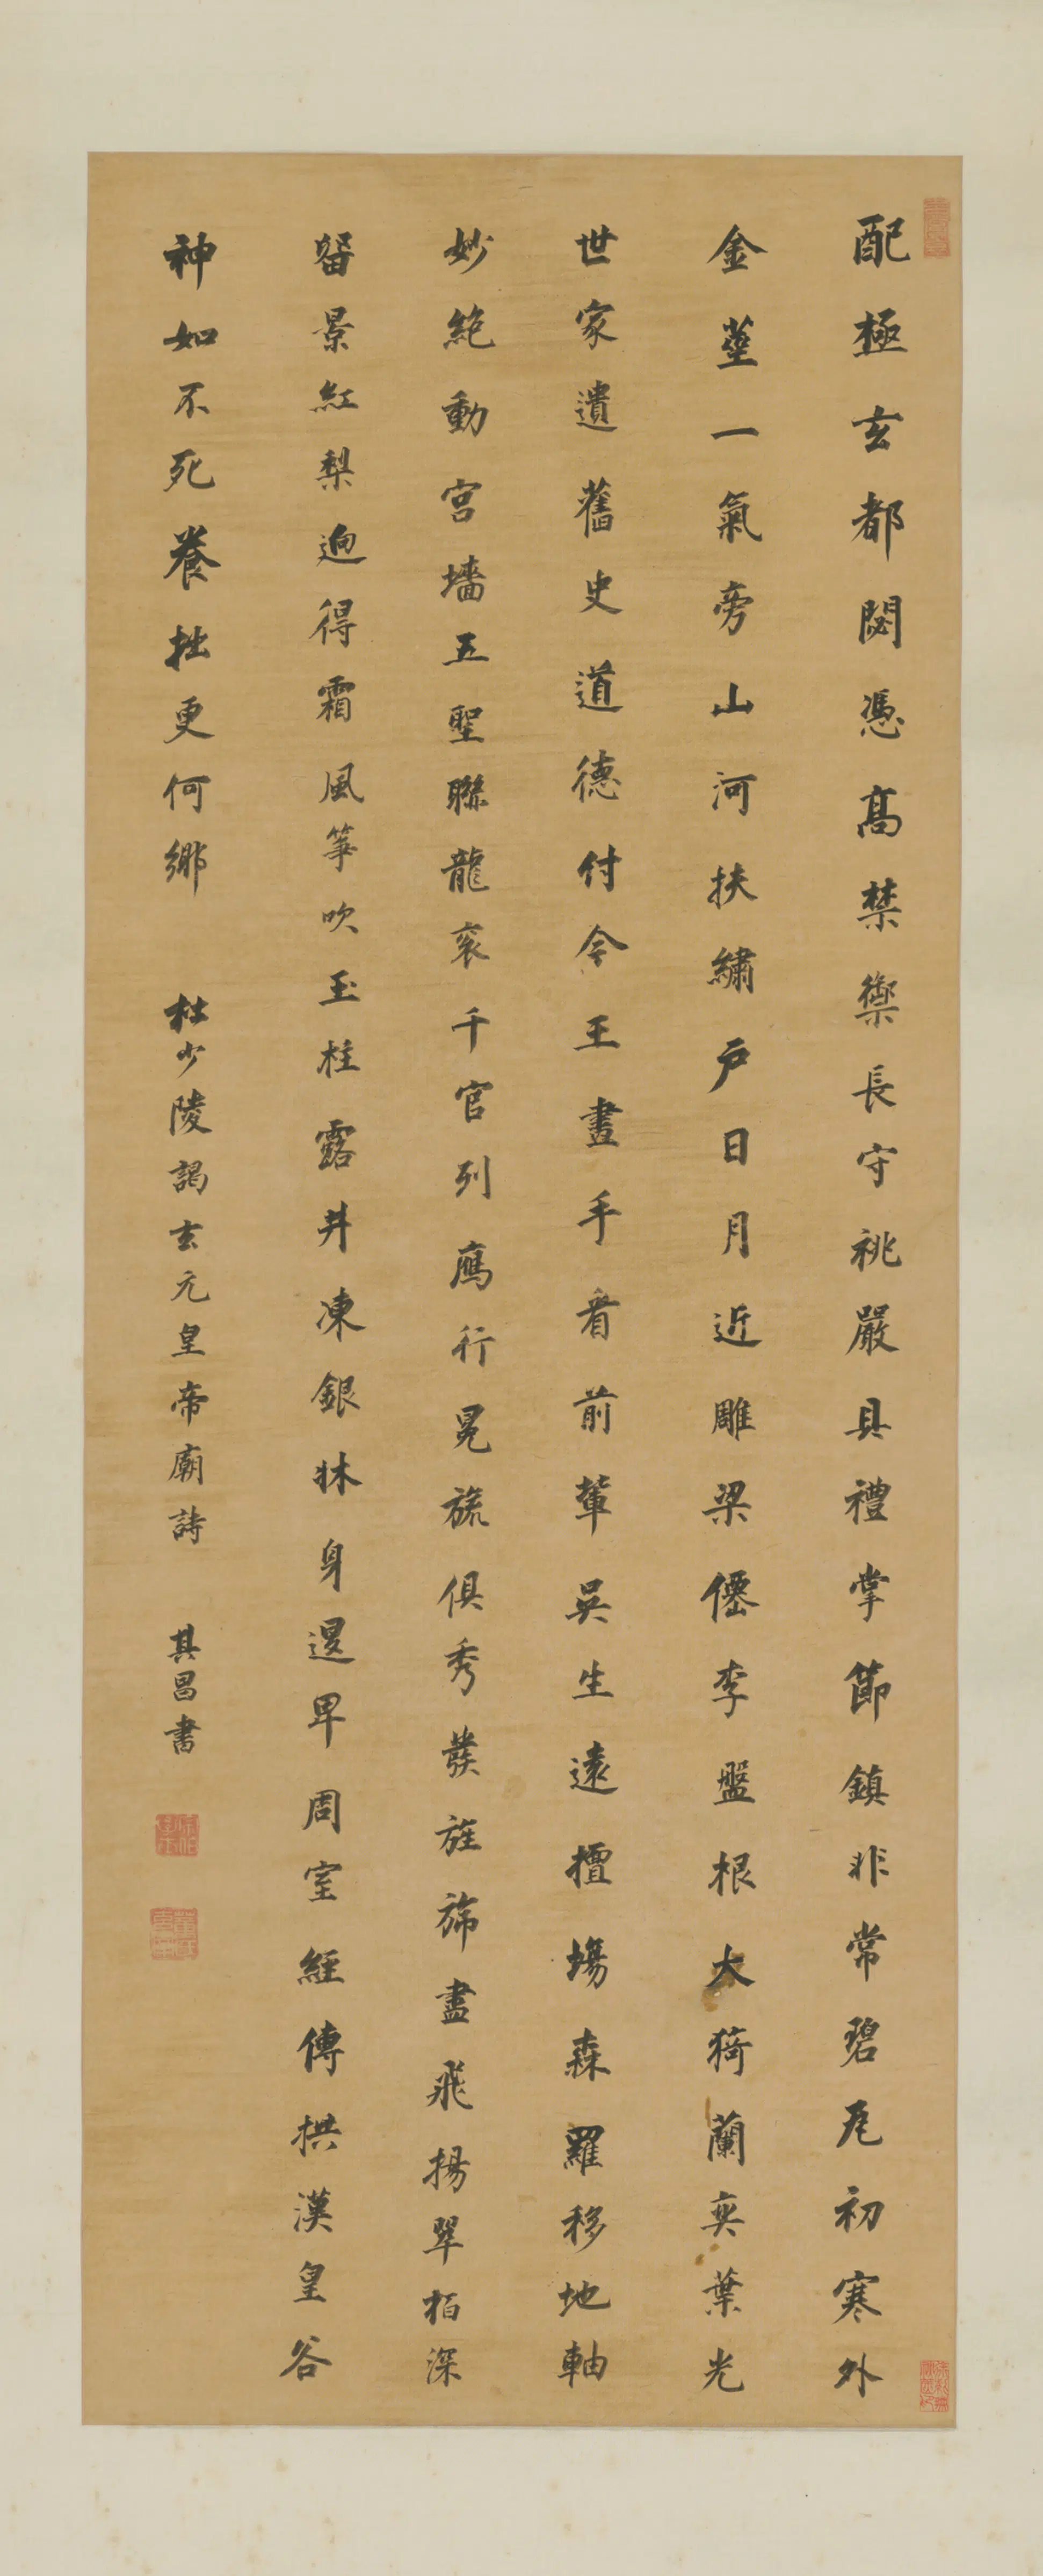 配極玄都閟憑高禁禦長守祧嚴具禮掌節鎮非常碧瓦初寒外
金莖一氣旁山河扶繡戶日月近雕梁僊李盤根大猗蘭奕葉光
世家遺舊史道德付令王畫手看前輩吳生遠擅場森羅移地軸
妙絶動宮墻五聖聯龍袞千官列鴈行冕旒俱秀發旌旆盡飛揚翠栢深
留景紅梨迥得霜風箏吹玉柱露井凍銀牀身退卑周室經傳拱漢皇谷
神如不死養拙更何鄉 杜少陵謁玄元皇帝廟詩 其昌書